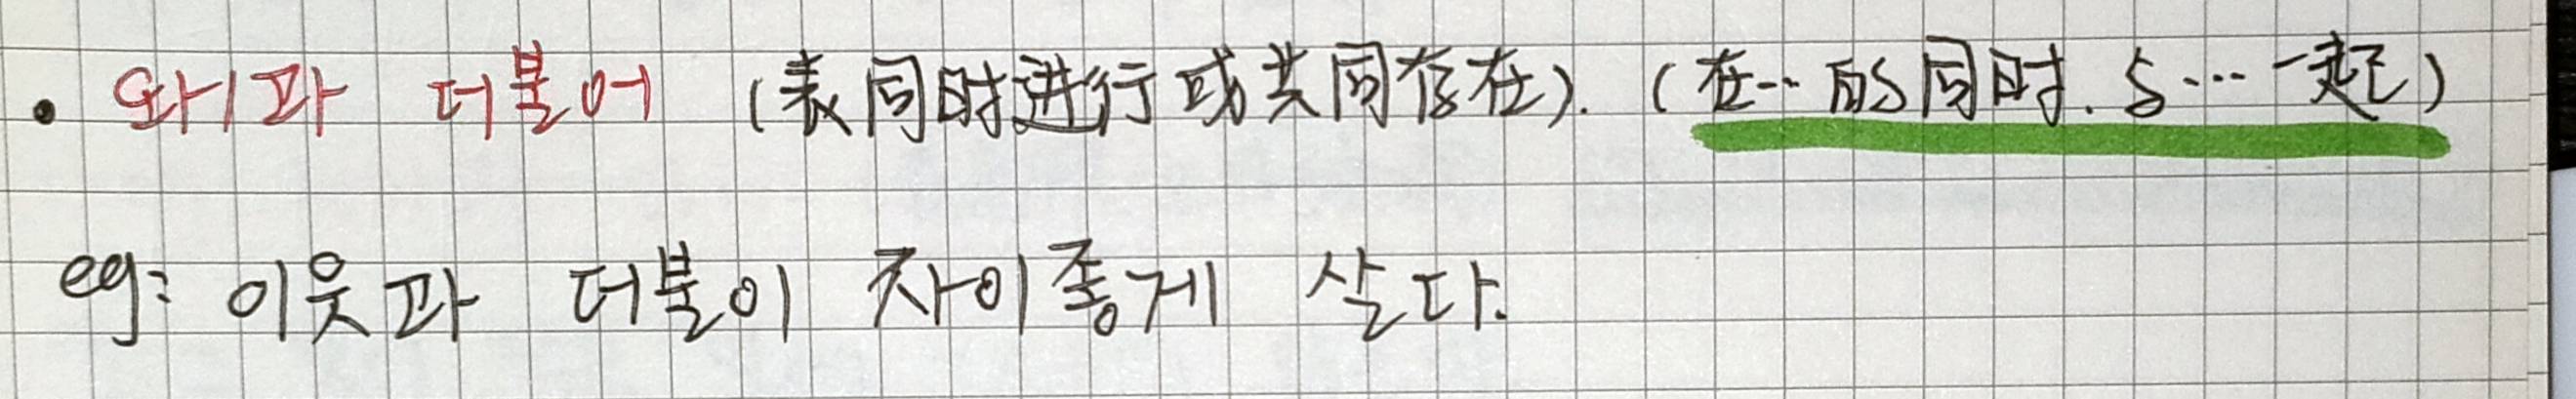 • 와/과 더불어 (表同时进行或共同存在). (在… 的同时. 与… 一起)
eg: 이웃과 더불이 자이좋게 살다.